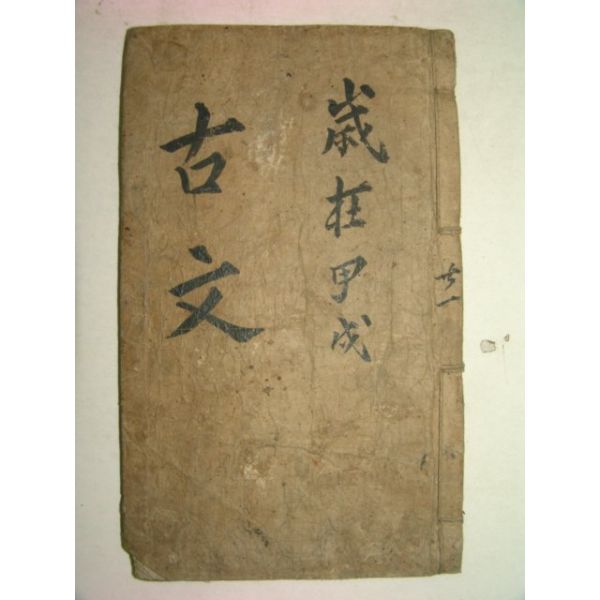 歲在甲戌
古文
共一